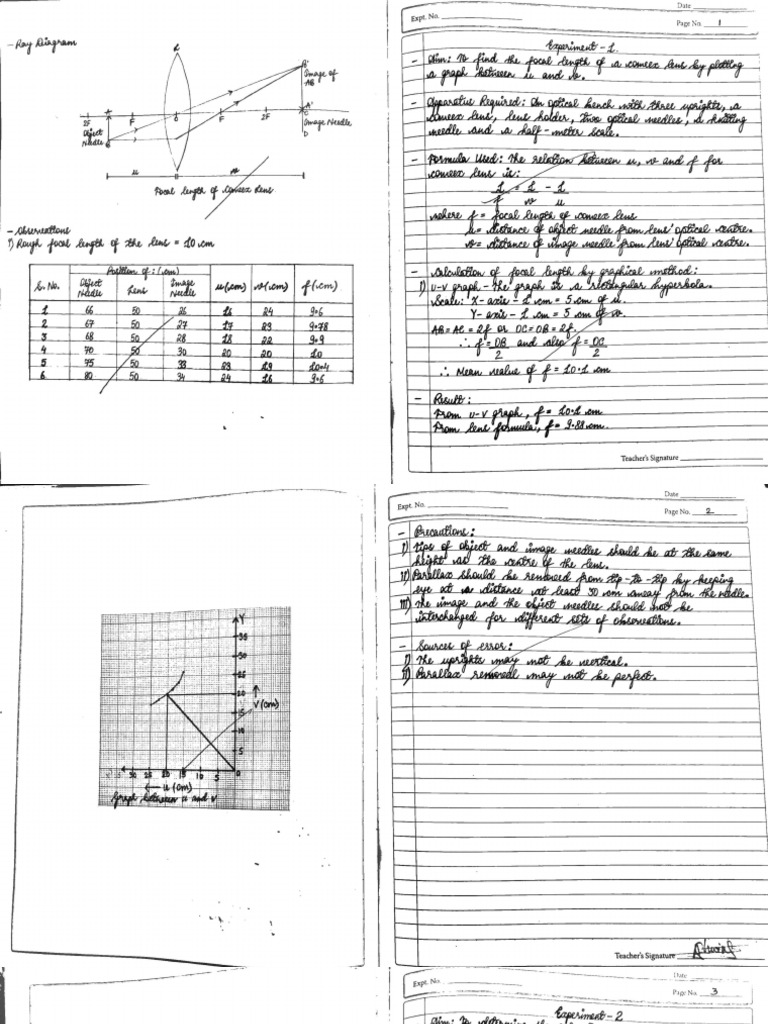 - Ray Diagram
L
B'
Image of
AB
2F F O F 2F
A'
C
Image Needle
D
Object
Needle
u v
Focal length of Convex Lens
- Observations
i) Rough focal length of the lens = 10 cm
S. No. Position of : (cm) u (cm) v (cm) f (cm)
Object Needle Lens Image Needle
1 66 50 26 16 24 9.6
2 67 50 27 17 23 9.78
3 68 50 28 18 22 9.9
4 70 50 30 20 20 10
5 75 50 33 23 19 10.4
6 80 50 34 24 16 9.6
Date
Expt. No.
Page No. 1
Experiment - 1
- Aim: To find the focal length of a convex lens by plotting
a graph between u and v.
- Apparatus Required: An optical bench with three uprights, a
convex lens, lens holder, two optical needles, a knitting
needle and a half-meter scale.
- Formula Used: The relation between u, v and f for
convex lens is:
1 = 1 - 1
f v u
where f = focal length of convex lens
u = distance of object needle from lens' optical centre.
v = distance of image needle from lens' optical centre.
- Calculation of focal length by graphical method:
i) u-v graph - The graph is a rectangular hyperbola.
Scale: X-axis - 1 cm = 5 cm of u.
Y-axis - 1 cm = 5 cm of v.
AB = AC = 2f or OC = OB = 2f.
∴ f = OB and also f = OC
2 2
∴ Mean value of f = 10.1 cm
- Result:
From u-v graph, f = 10.1 cm
From lens formula, f = 9.88 cm.
Teacher's Signature
Y
35
30
25
20
15
10
5
V (cm)
30 25 20 15 10 5 0
u (cm)
Graph between u and v
Date
Expt. No.
Page No. 2
- Precautions:
i) Tips of object and image needles should be at the same
height as the centre of the lens.
ii) Parallax should be removed from tip-to-tip by keeping
eye at a distance at least 30 cm away from the needle.
iii) The image and the object needles should not be
interchanged for different sets of observations.
- Sources of error:
i) The uprights may not be vertical.
ii) Parallax removal may not be perfect.
Teacher's Signature
Date
Expt. No.
Page No. 3
Experiment - 2